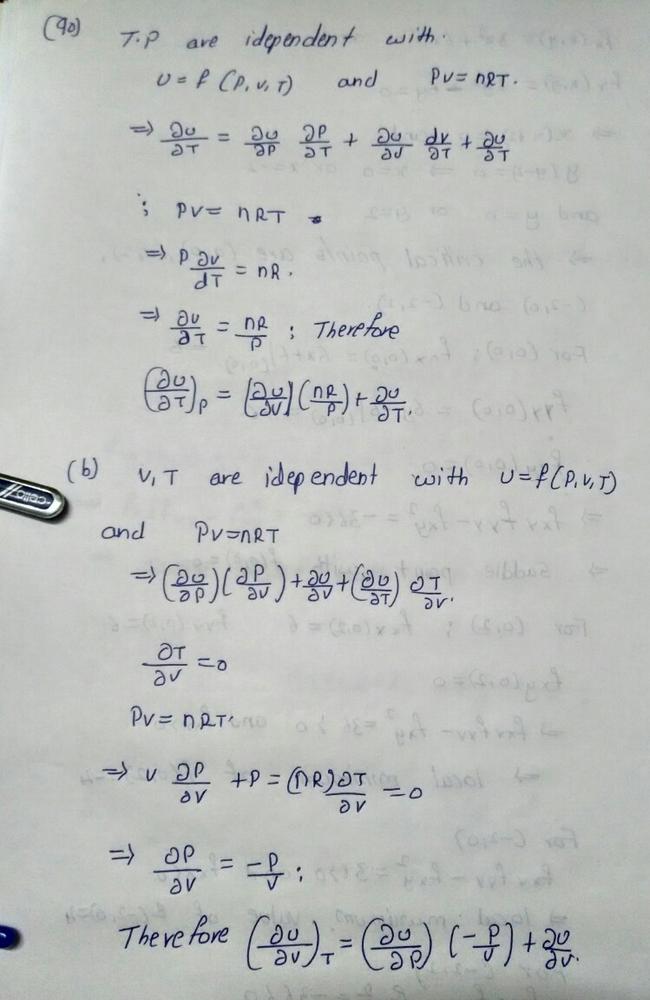 (90) T.P are idependent with.
U = f (P, V, T) and PV = nRT.
⇒ ∂U/∂T = ∂U/∂P ∂P/∂T + ∂U/∂V dV/∂T + ∂U/∂T
; PV = nRT
⇒ P ∂V/dT = nR.
⇒ ∂V/∂T = nR/P ; Therefore
(∂U/∂T)P = (∂U/∂V) (nR/P) + ∂U/∂T.
(b) V, T are idependent with U = f(P, V, T)
and PV = nRT
⇒ (∂U/∂P) (∂P/∂V) + ∂U/∂V + (∂U/∂T) ∂T/∂V.
∂T/∂V = 0
PV = nRT.
⇒ V ∂P/∂V + P = (nR) ∂T/∂V = 0
⇒ ∂P/∂V = -P/V ;
Therefore (∂U/∂V)T = (∂U/∂P) (-P/V) + ∂U/∂V.